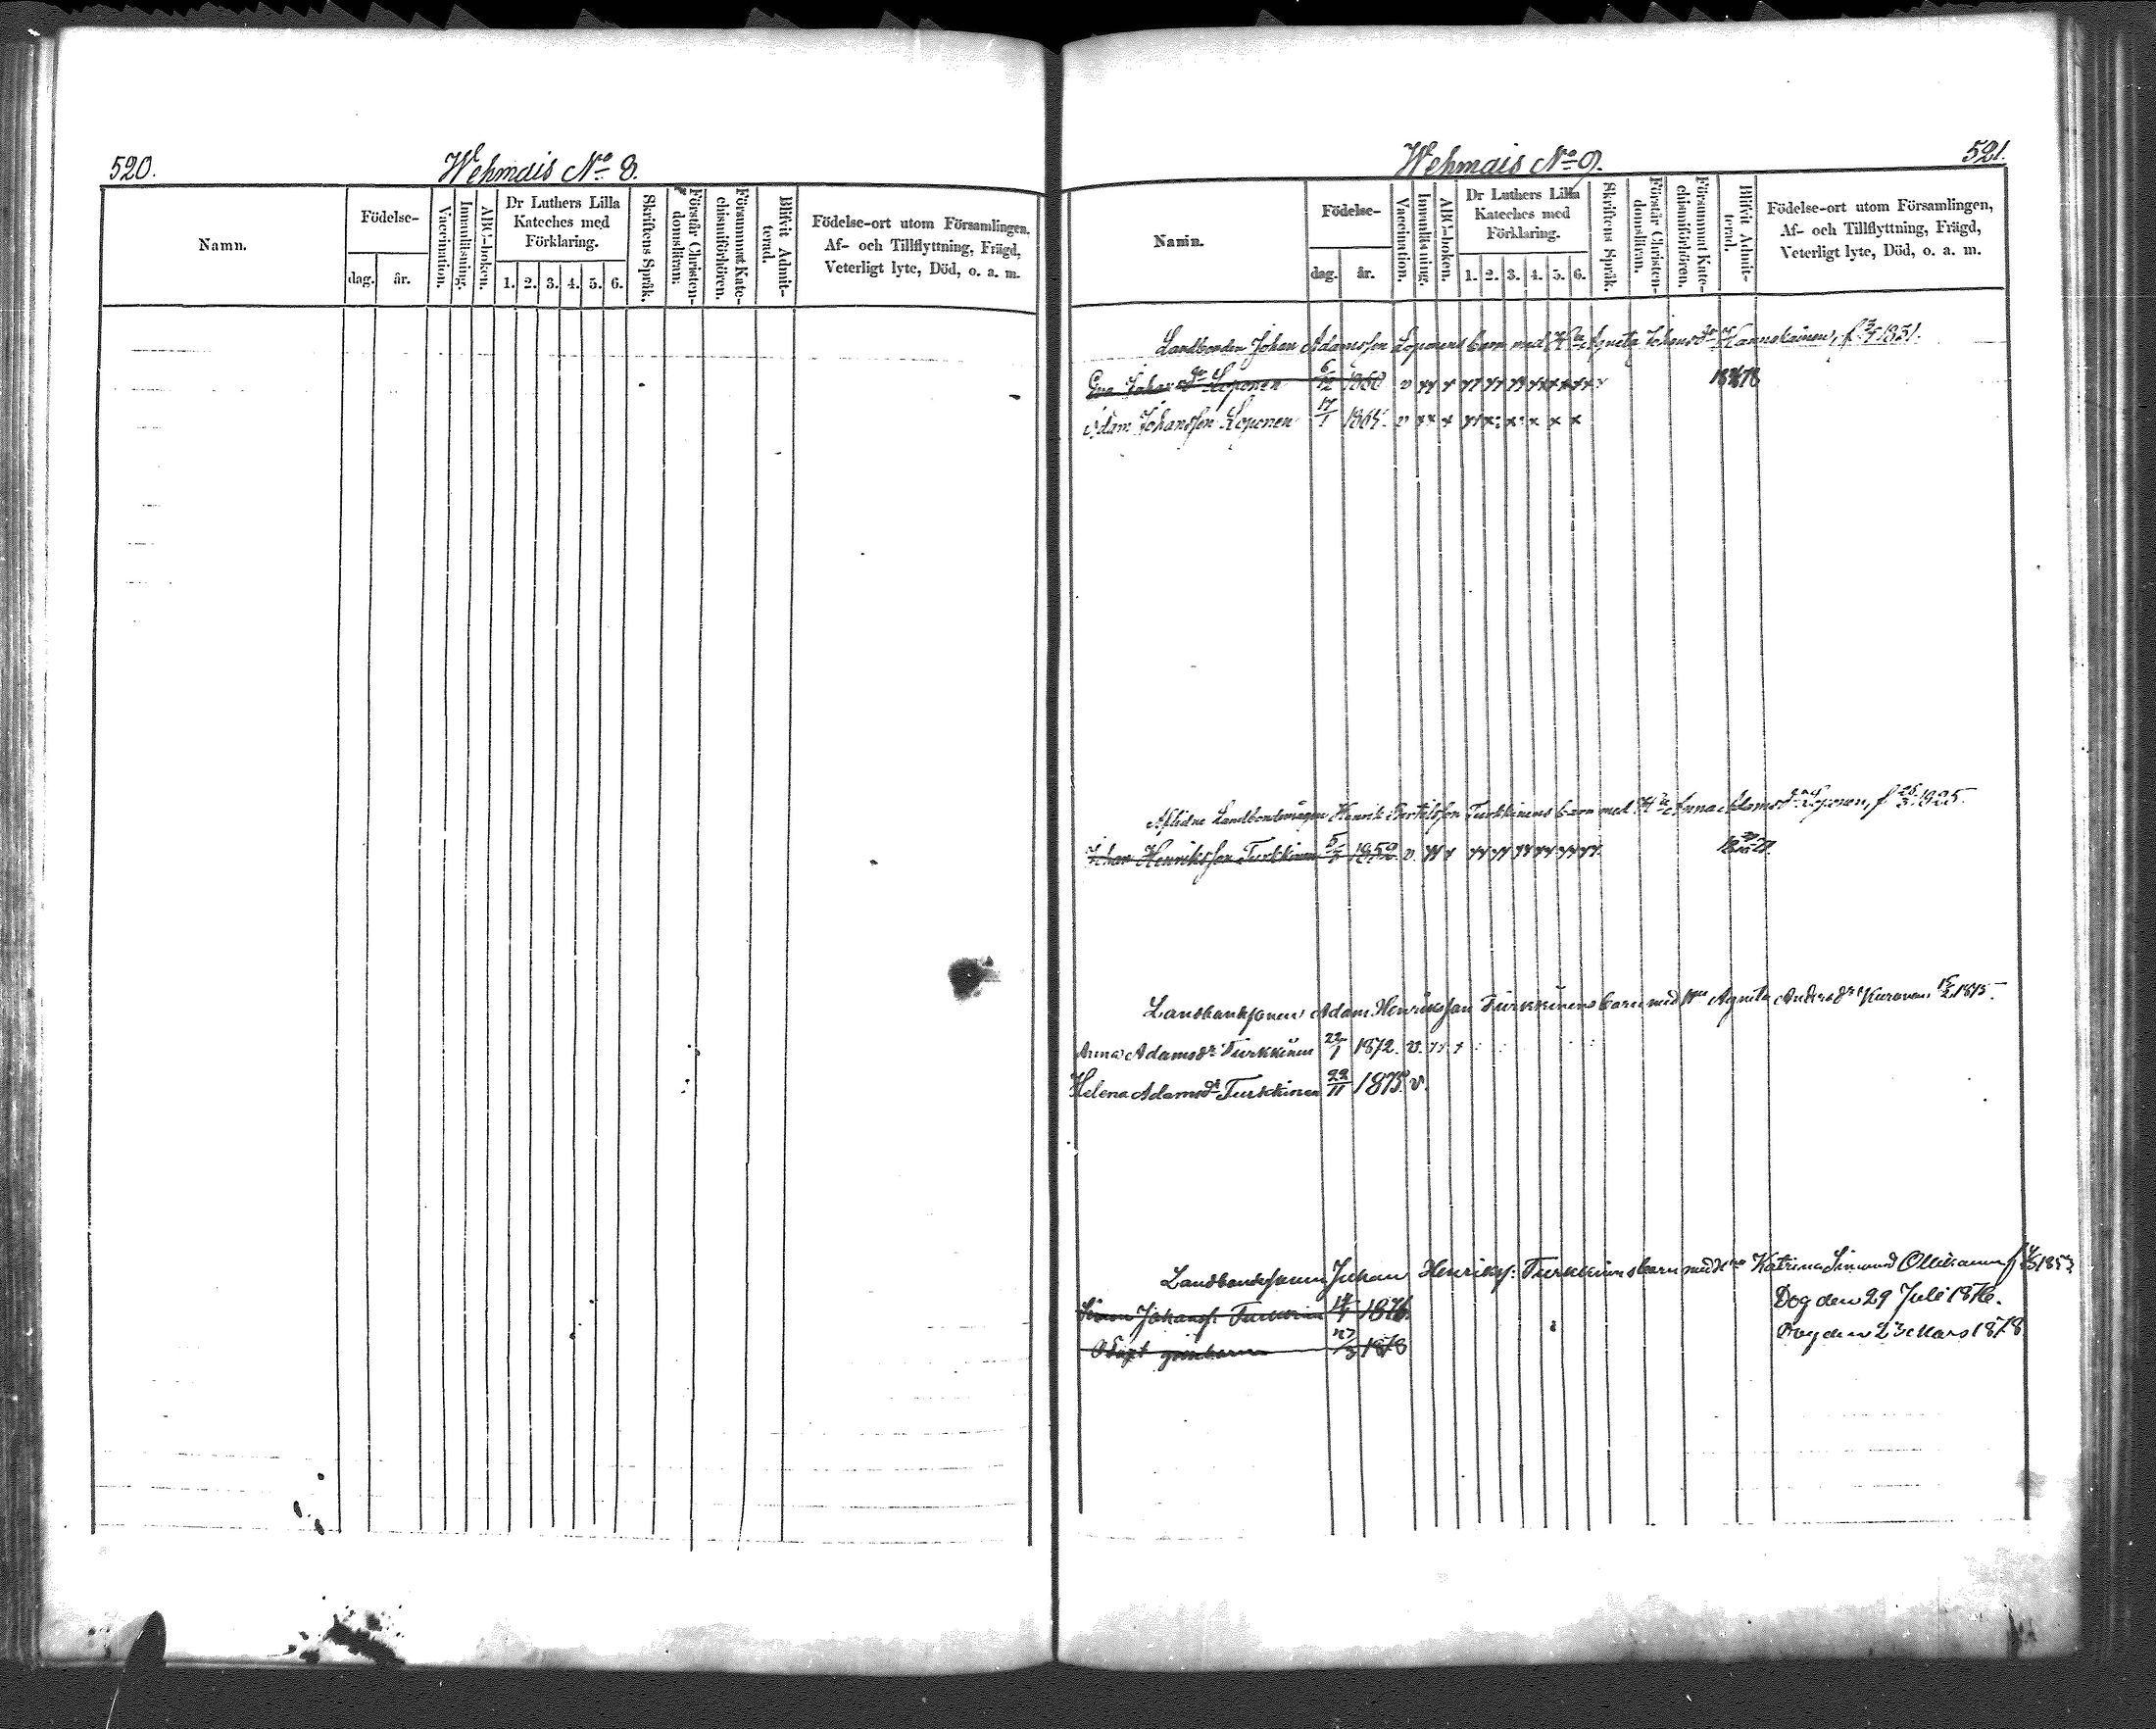 520.
Wehmais No 8.
Namn.
Födelse-
dag.
år.
Vaccination.
Innanläsning.
ABC-boken.
Dr Luthers Lilla
Kateches med
Förklaring.
1. 2. 3. 4. 5. 6.
Skriftens Språk.
Förstår Christen-
domsläran.
Försummat Kate-
chismiförhören.
Blifvit Admit-
terad.
Födelse-ort utom Församlingen,
Af- och Tillflyttning, Frägd,
Veterligt lyte, Död, o. a. m.
521.
Wehmais No 9.
Namn.
Födelse-
dag.
år.
Vaccination.
Innanläsning.
ABC-boken.
Dr Luthers Lilla
Kateches med
Förklaring.
1. 2. 3. 4. 5. 6.
Skriftens Språk.
Förstår Christen-
domsläran.
Försummat Kate-
chismiförhören.
Blifvit Admit-
terad.
Födelse-ort utom Församlingen,
Af- och Tillflyttning, Frägd,
Veterligt lyte, Död, o. a. m.
Landbonden Johan Adamsson Loponens barn med Agneta Johansdr 1831.
Eva Johansdr Loponen 6/12 1860 v
Adam Johansson Loponen 17/1 1865. v
Aflidne Henrik Turkkinens barn med Anna Adamsdr Loponen, f 1825.
Johan Henriksson Turkkinen 1852 v.
Adam Henriksson Turkkinens barn med Agneta Andersdr
Anna Adamsdr Turkkinen 22/1 1872. v.
Helena Adamsdr Turkkinen 22/11 1875. v.
Johan Henrikss: Turkkinens barn med Katrina Simonsd
Simon Johanss. Turkkinen 1876. Dog den 29 Juli 1876.
Odöpt gossebarn 1878 Dog den 23 Mars 1878